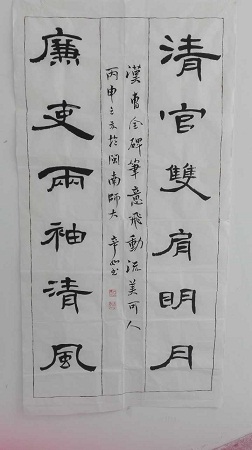 清官雙肩明月
漢曹全碑筆意飛動流美可人
廉吏兩袖清風
丙申之冬於閩南師大